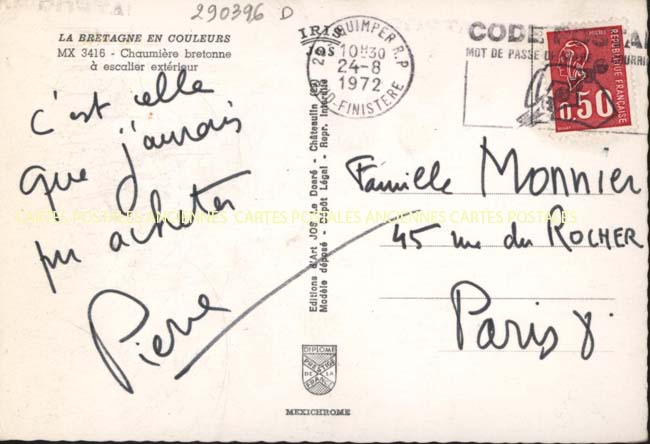 290396 D
LA BRETAGNE EN COULEURS
MX 3416 - Chaumière bretonne
à escalier extérieur
c'est celle
que j'aurais
pu acheter
Pierre
IRIS
JOS
Editions d'Art JOS Le Doaré - Châteaulin
Modèle déposé - Dépôt Légal - Repr. Interdite
DIPLOME
PRESTIGE
DE LA
FRANCE
MEXICHROME
QUIMPER R.P.
10H30
24-8
1972
FINISTERE
CODE
MOT DE PASSE
REPUBLIQUE FRANÇAISE
0,50
Famille Monnier
45 rue du ROCHER
Paris 8
CARTES POSTALES ANCIENNES CARTES POSTALES ANCIENNES CARTES POSTALES